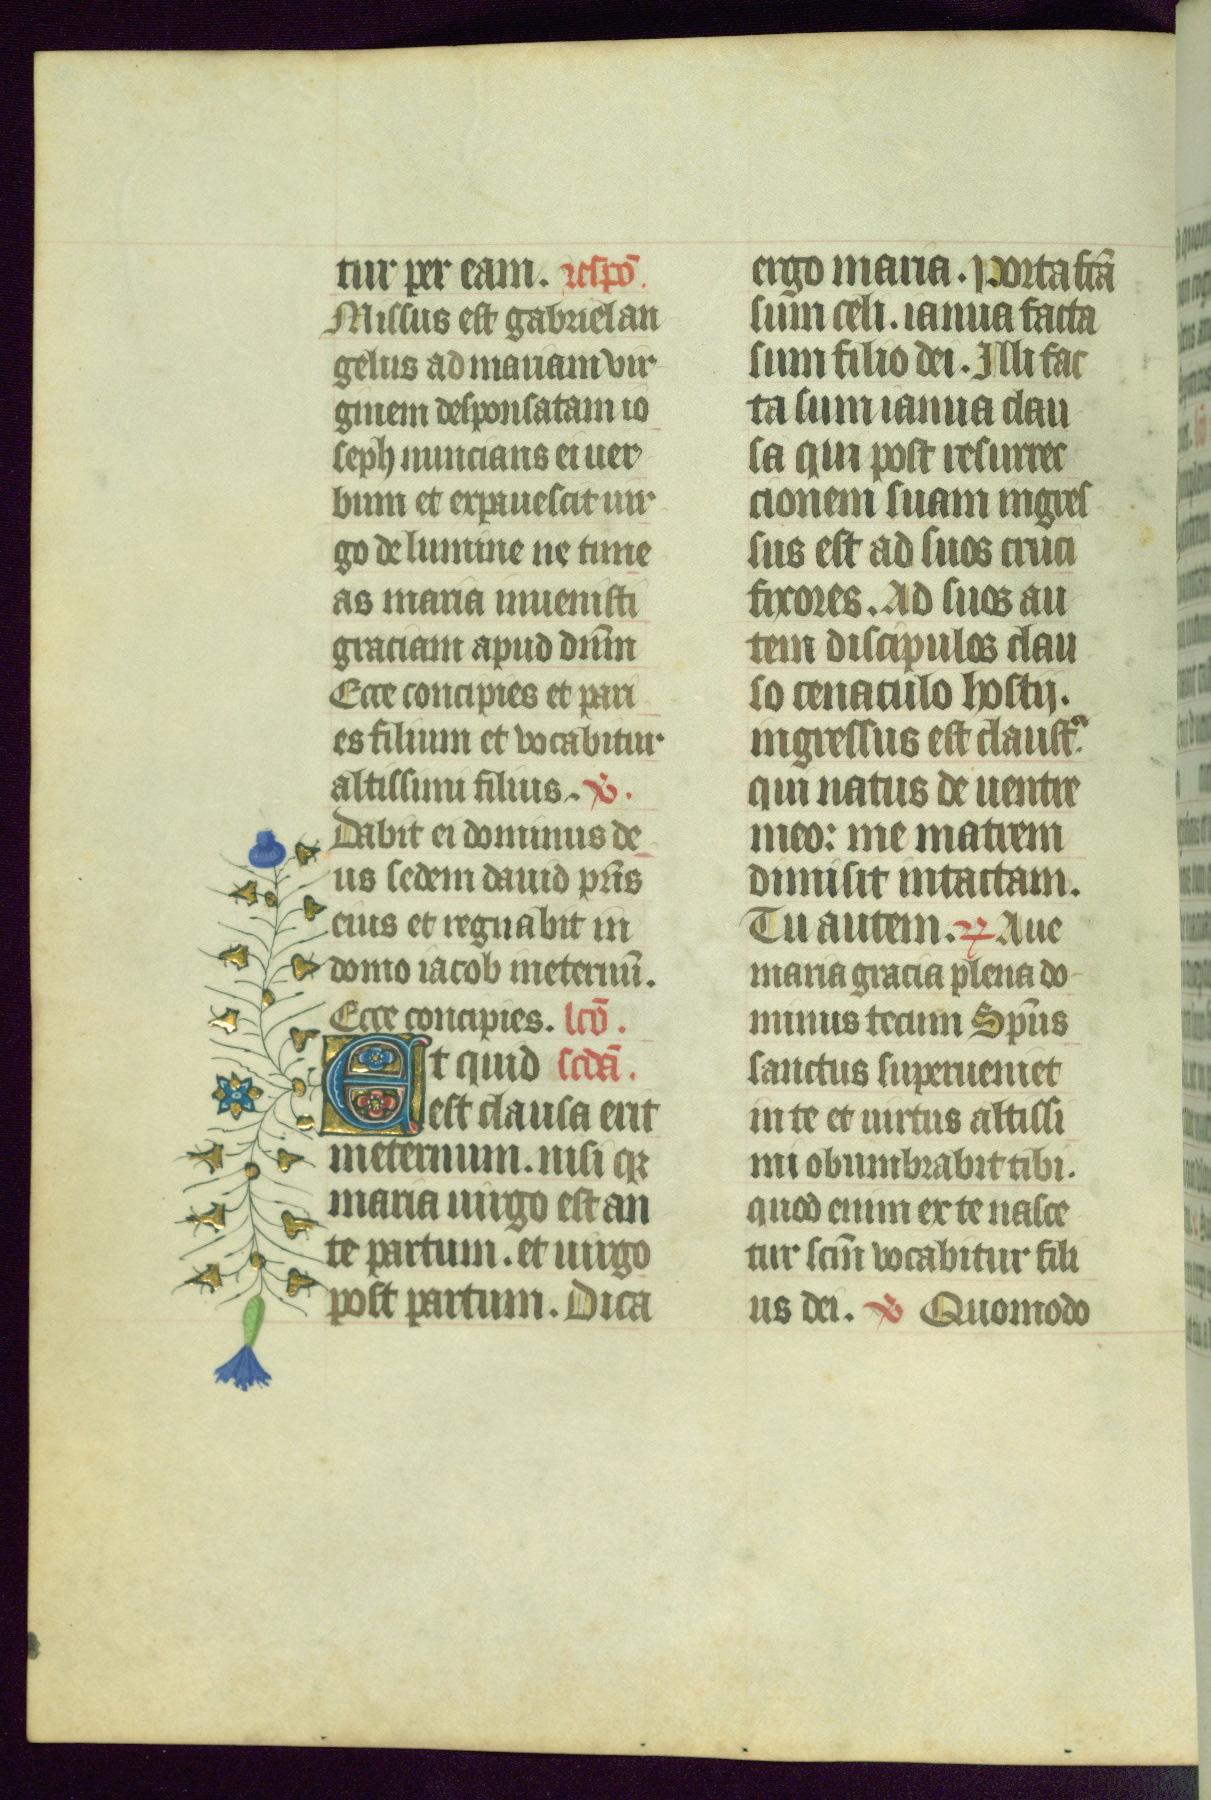 tur per eam. respō.
Missus est gabriel an
gelus ad mariam vir
ginem desponsatam io
seph nuncians ei uer
bum et expauescit uir
go de lumine ne time
as maria inuenisti
graciam apud dn̄m
Ecce concipies et pari
es filium et vocabitur
altissimi filius. ℣.
Dabit ei dominus de
us sedem dauid pr̄is
eius et regnabit in
domo iacob ineternū.
Ecce concipies. lcō.
Et quid scdā.
est clausa erit
ineternum. nisi qꝛ
maria uirgo est an
te partum. et uirgo
post partum. Dica
ergo maria. porta fc̄ā
sum celi. ianua facta
sum filio dei. Illi fac
ta sum ianua clau
sa qui post resurrec
cionem suam ingres
sus est ad suos cruci
fixores. Ad suos au
tem discipulos clau
so cenaculo hostij.
ingressus est claustᵃ.
qui natus de uentre
meo: me matrem
dimisit intactam.
Tu autem. ℟ Aue
maria gracia plena do
minus tecum Sp̄us
sanctus superueniet
in te et uirtus altissi
mi obumbrabit tibi.
quod enim ex te nasce
tur scm̄ vocabitur fili
us dei. ℣ Quomodo